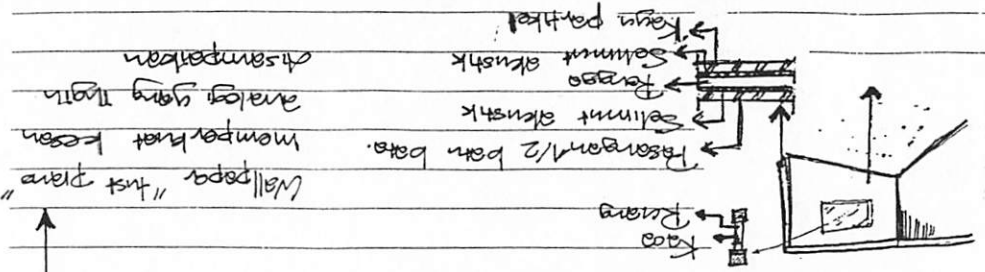 Kaca
Pasangan 1/2 batu bata.
Selimut akustik
Rongga
Selimut akustik
Kayu partikel
Wall paper "tust piano"
memperkuat kesan
analogi yang ingin
disampaikan